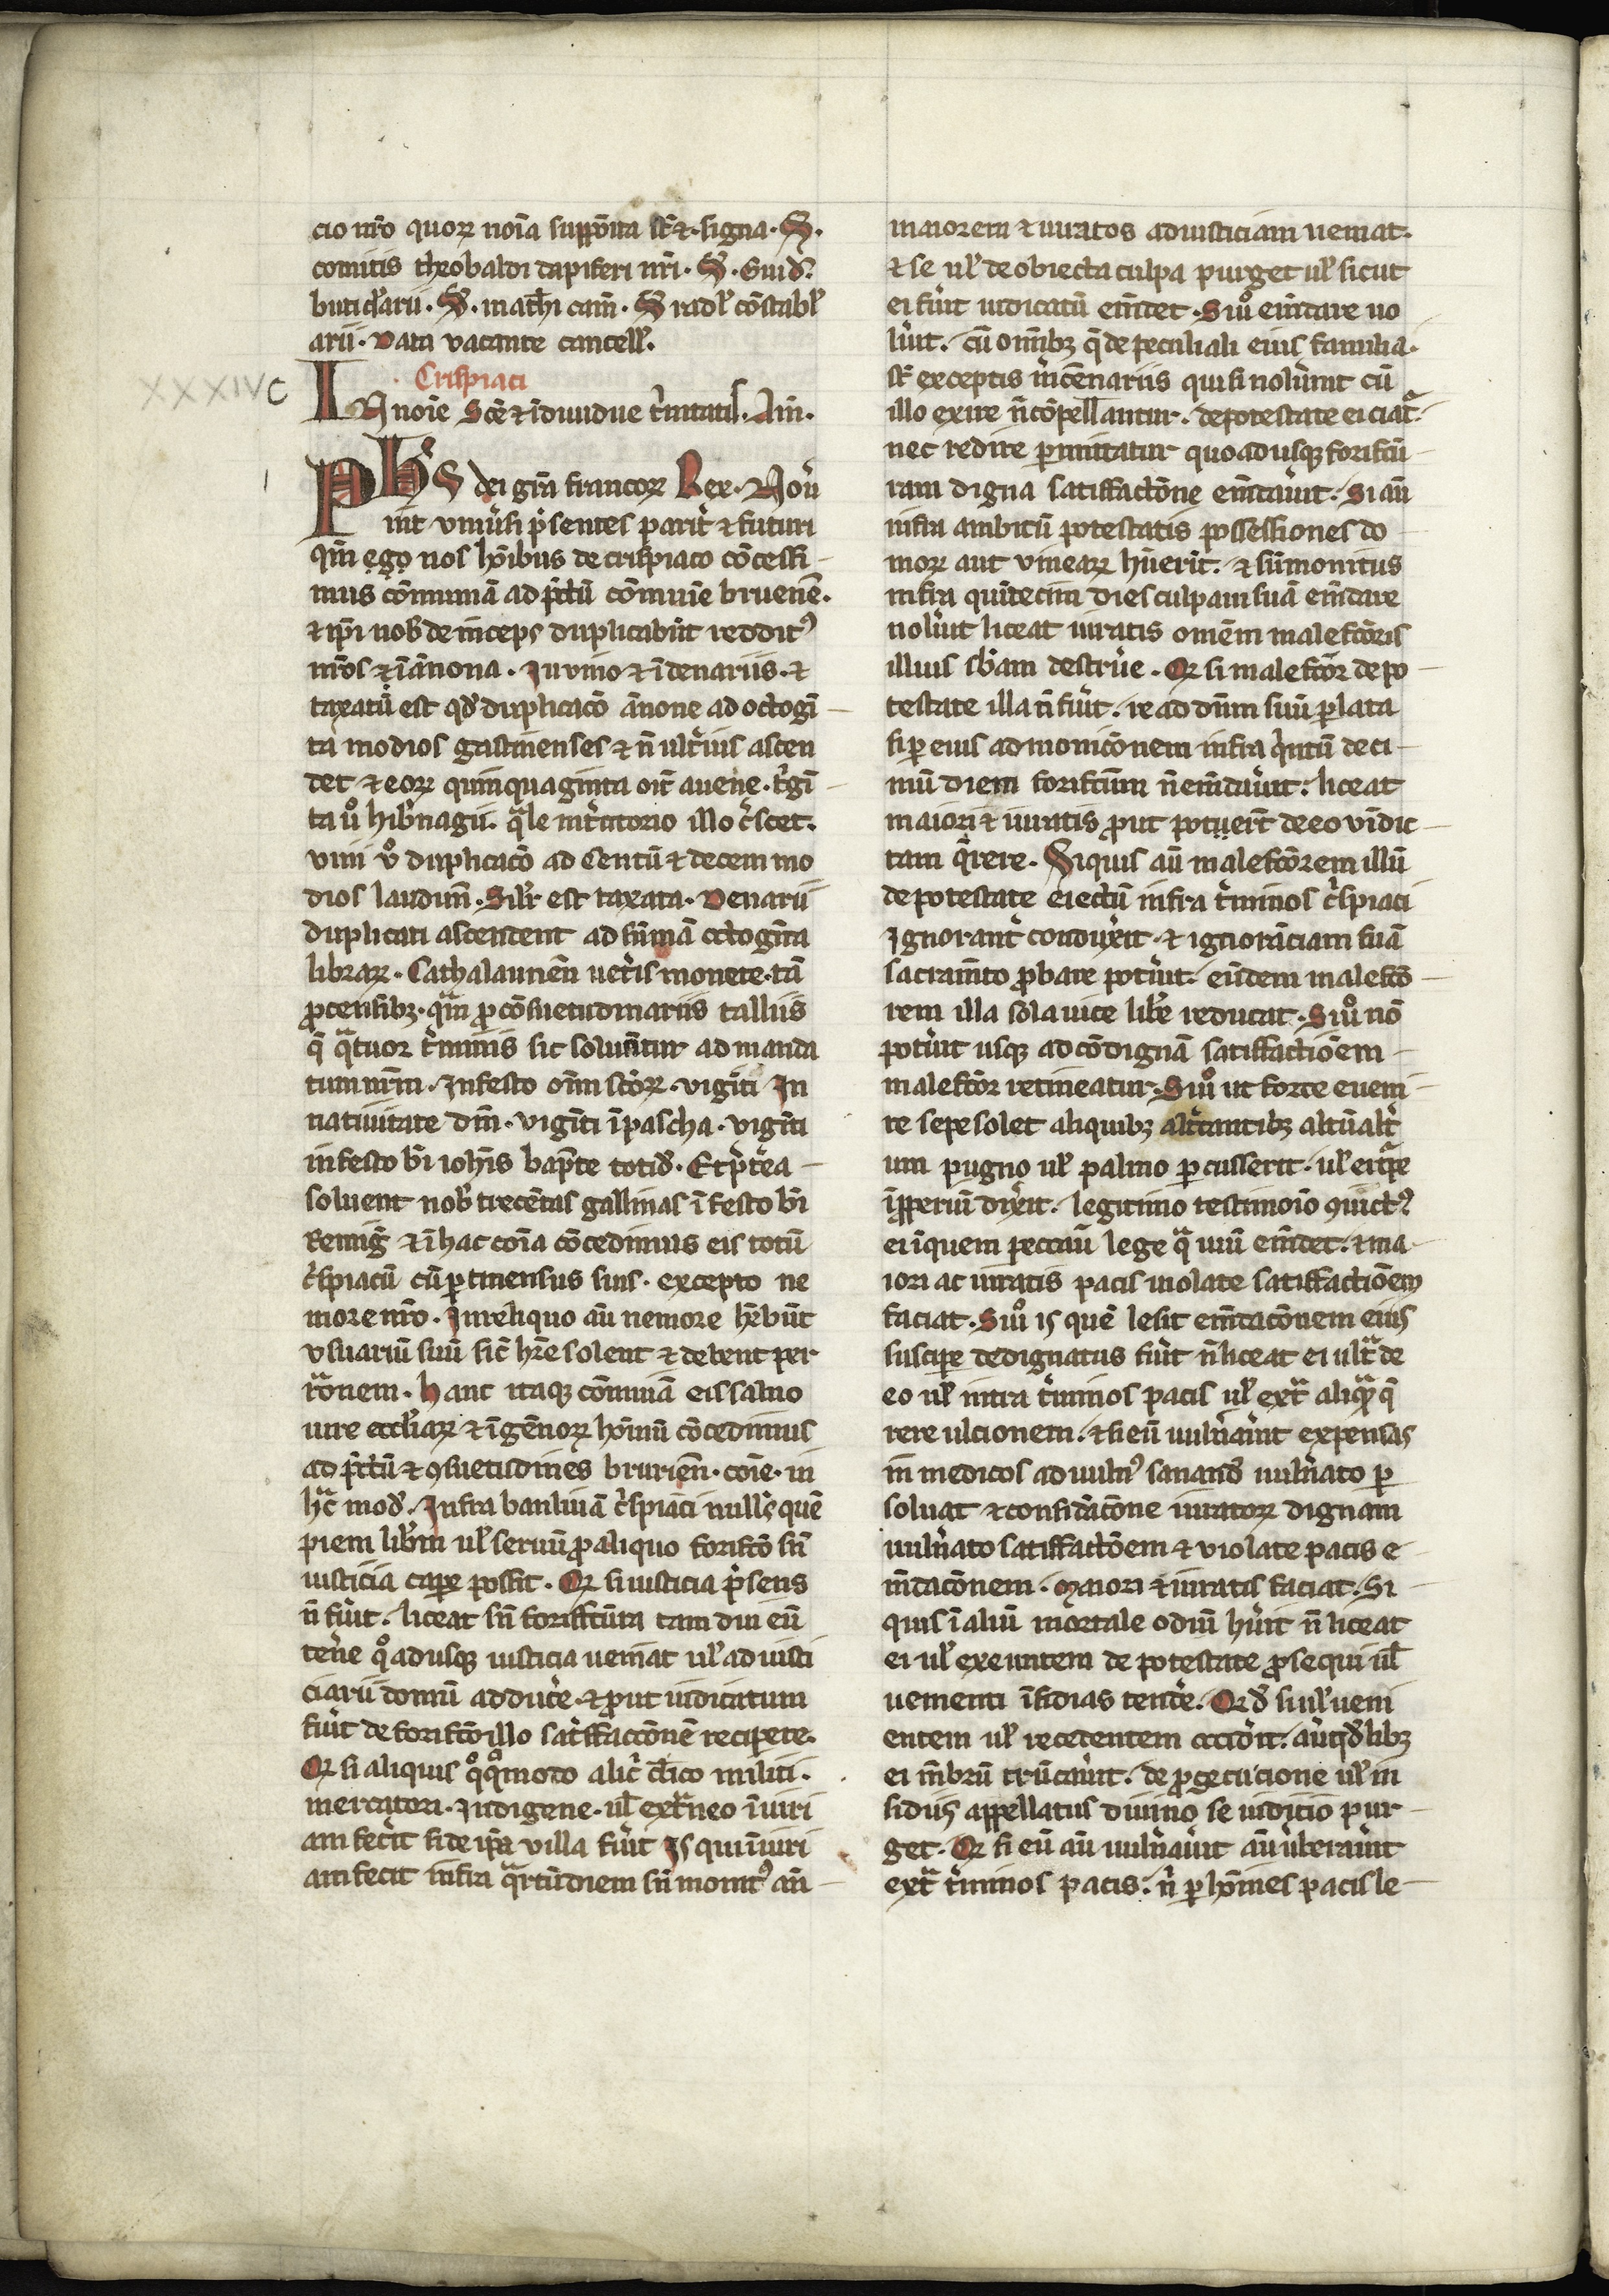 cio nr̄o quoꝝ noīa supposita st̄ ⁊ signa. S.
comitis theobaldi dapiferi nr̄i. S. Guid̄.
buticl̄arii. S. math̄i cam̄. S radl̄ cōstabl̄
arii. Data vacante cancell̄.
Crispiaci
XXXIV C
IN noīe Sc̄e ⁊ īdiuidue t̓nitatis. Am̄.
Ph̄s dei gr̄a francoꝝ Rex. Nou̓
int vniu̓si p̓sentes parit̓ ⁊ futuri
qm̄ ego nos hōibus de crispiaco cōcessi
mus cōmuniā ad p̄ctū cōmunie bruenē.
⁊ ip̄i nob̄ deinceps duplicabūt reddit᷒
nr̄os ⁊ ī ānona. In vino ⁊ ī denariis. ⁊
taxatū est qd̄ duplicacō ānone ad octogī
ta modios gastinenses ⁊ n̄ ult̓ius ascen
det ⁊ eoꝝ quinquaginta er̄t auene. t̓gī
ta u̓o hib̓nagii. q̄le in t̓ritorio illo c̓scet.
vini v̓o duplicacō ad Centū ⁊ decem mo
dios laudun̄. Silr̄ est taxata. Denarii
duplicati ascendent ad sūmā octogīta
libraꝝ. Cathalaunēn uet̓is monete. tā
ꝓ censibꝫ. qᵃm ꝓ cōsuetudinariis talliis
q̄ qᵃtuor t̓minis sic soluentur ad manda
tum nr̄m. In festo oīm sc̄oꝝ. vigīti In
natiuitate dn̄i. vigīti ī pascha. vigīti
in festo bī ioh̄is bapt̄e totid̄. Et p̓t̓ea
soluent nob̄ trecētas gallinas ī festo bī
Remig̓ ⁊ ī hac coīa cōcedimus eis totū
c̓spiacū cū ꝑtinensus suis. excepto ne
more nr̄o. In reliquo aū nemore hēbūt
vsuariū suū sic̄ hr̄e solent ⁊ debent per
rōnem. Hanc itaqꝫ cōmuiā eis saluo
iure eccl̄iaꝝ ⁊ īgēnoꝝ hōinū cōcedimus
ad p̄ctū ⁊ ꝯsuetudines brurien̄. coīe. in
hᶜ mod̄. Infra banliuā c̓spiaci nullus quē
piem lib̓m ul̓ seruū ꝓ aliquo forifcō sn̄
iusticia cape possit. Qꝫ si iusticia p̓sens
n̄ fu̓it. liceat sn̄ forisfctura tam diu eū
ten̓e q̊adusqꝫ iusticia ueniat ul̓ ad iusti
ciarii domū adduc̓e. ⁊ ꝓut iudicatum
fu̓it de forifcō illo satisfaccōnē recipere.
Qꝫ si aliquis q̊qᵒmodo alic̓ cl̓ico militi.
mercatori. Indigene. ul̓ extᵃneo īiuri
am fec̓it si de ip̄a villa fu̓it Is qui īiuri
am fecit infra qᵃrtū diem sn̄ monit᷒ an̄
maiorem ⁊ iuratos ad iusticiam ueniat.
⁊ se ul̓ de obiecta culpa purget ul̓ sicut
ei fu̓it iudicatū emdet. Si u̓o emdare no
lu̓it. cū om̄ibꝫ q̄ de peculiali eius familia.
st̄ exceptis m̓cēnariis qui si nolu̓int cū
illo exire n̄ cōpellantur. de potestate eiciat̓.
nec redire ꝑmittatur quoadusqꝫ forifctu
ram digna satisfactōne emdau̓it. Si aū
infra ambitū potestatis possessiones do
moꝝ aut vineaꝝ hūerit. ⁊ sūmonitus
infra quidecim dies culpam suā emdare
nolu̓it liceat iuratis omēm malefcōris
illius sb̄am destru̓e. Qꝫ si malefcōr de po
testate illa n̄ fu̓it. re ad dn̄m suū ꝑlata
si ꝑ eius admonicōnem infra q̓ntū deci
mū diem forifcūm n̄ emdau̓it. liceat
maiori ⁊ iuratis ꝓut potuer̄t de eo vidic
tam q̓rere. Siquis aū malefcōrem illū
de potestate eiectū infra t̓minos c̓spiaci
Ignorant̓ condux̓it. ⁊ ignorāciam suā
sacramto ꝓbare pot̓it. eūdem malefcō
rem illa sola uice lib̓e reducat. Si u̓o nō
pot̓it usqꝫ ad cōdignā satisfactiōem
malefcōr retineatur. Si u̓o ut forte eueni
re sepe solet aliquibꝫ alt̓cantibꝫ alt̓ alt̓
um pugno ul̓ palmo ꝑcusserit. ul̓ ei tᵃpe
īꝓperiū dix̓it. legitimo testimoīo ꝯuict᷒
ei in quem peccau̓ lege qᵃ uiū emdet. ⁊ ma
iori ac iuratis pacis uiolate satisfactiōem
faciat. Si u̓o is quē lesit emdacōnem eius
suscipe dedignatus fu̓it n̄ liceat ei ultᵃ de
eo ul̓ intra t̓minos pacis ul̓ extᵃ aliqᵃ q̄
rere ulcionem. ⁊ si eū uuln̓au̓it expensas
in medicos ad uuln᷒ sanand̄ uuln̓ato ꝑ
soluat ⁊ confid̓acōne iuratoꝝ dignam
uuln̓ato satisfactōem ⁊ violate pacis e
mdacōnem. Maiori ⁊ iuratis faciat. Si
quis ī aliū mortale odiū hu̓it n̄ liceat
ei ul̓ exeuntem de potestate ꝓsequi ul̓
uenienti īsidias tend̓e. Qd̄ si ul̓ ueni
entem ul̓ recedentem occid̓it. aut qd̄libꝫ
ei mbrū trūcau̓it. de ꝓsecucione ul̓ in
sidiis appellatus diuino se iudicio pur
get. Qꝫ si eū aū uuln̓au̓it aū ūberau̓it
extᵃ t̓minos pacis. n̄ ꝑ hōines pacis le